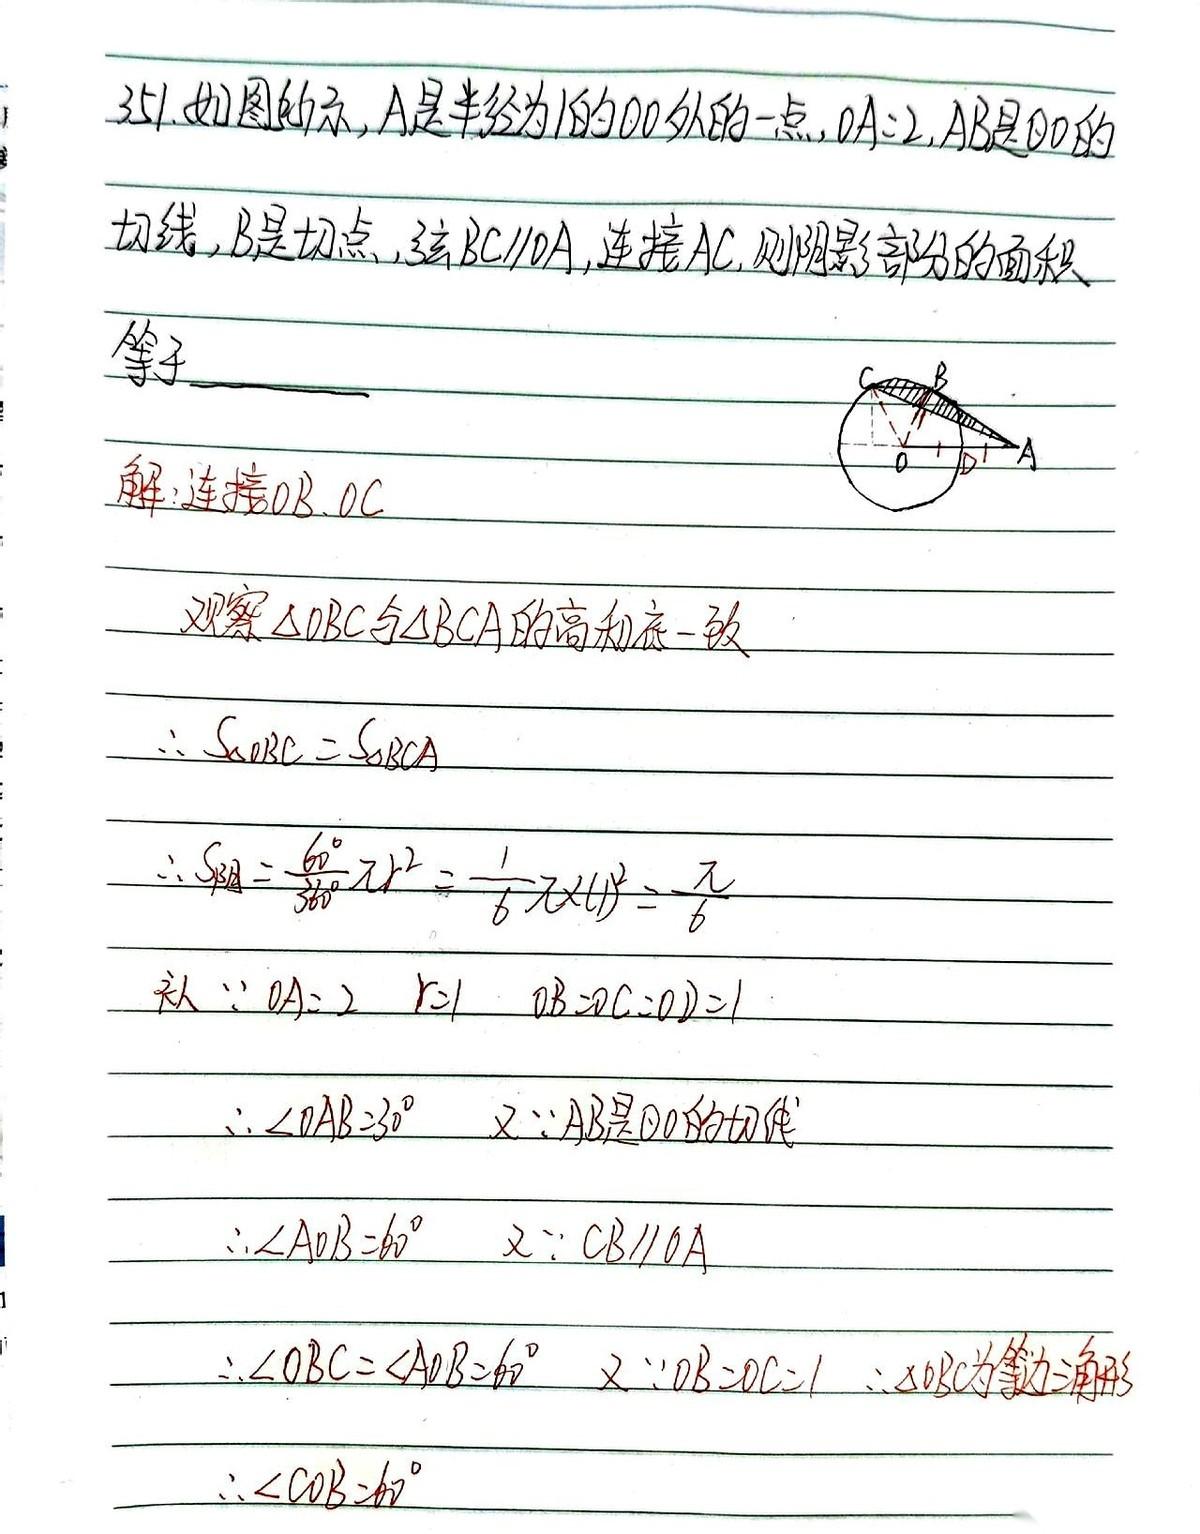 351.如图所示,A是半径为1的⊙O外的一点,OA=2,AB是⊙O的
切线,B是切点,弦BC//OA,连接AC,则阴影部分的面积
等于
C B
O D A
解:连接OB、OC
观察△OBC与△BCA的高和底一致
∴ S△OBC = S△BCA
∴ S阴 = 60°/360° πr² = 1/6 π×(1)² = π/6
补 ∵ OA=2 r=1 OB=OC=OD=1
∴∠OAB=30° 又∵AB是⊙O的切线
∴∠AOB=60° 又∵ CB//OA
∴∠OBC=∠AOB=60° 又∵OB=OC=1 ∴△OBC为等边三角形
∴∠COB=60°